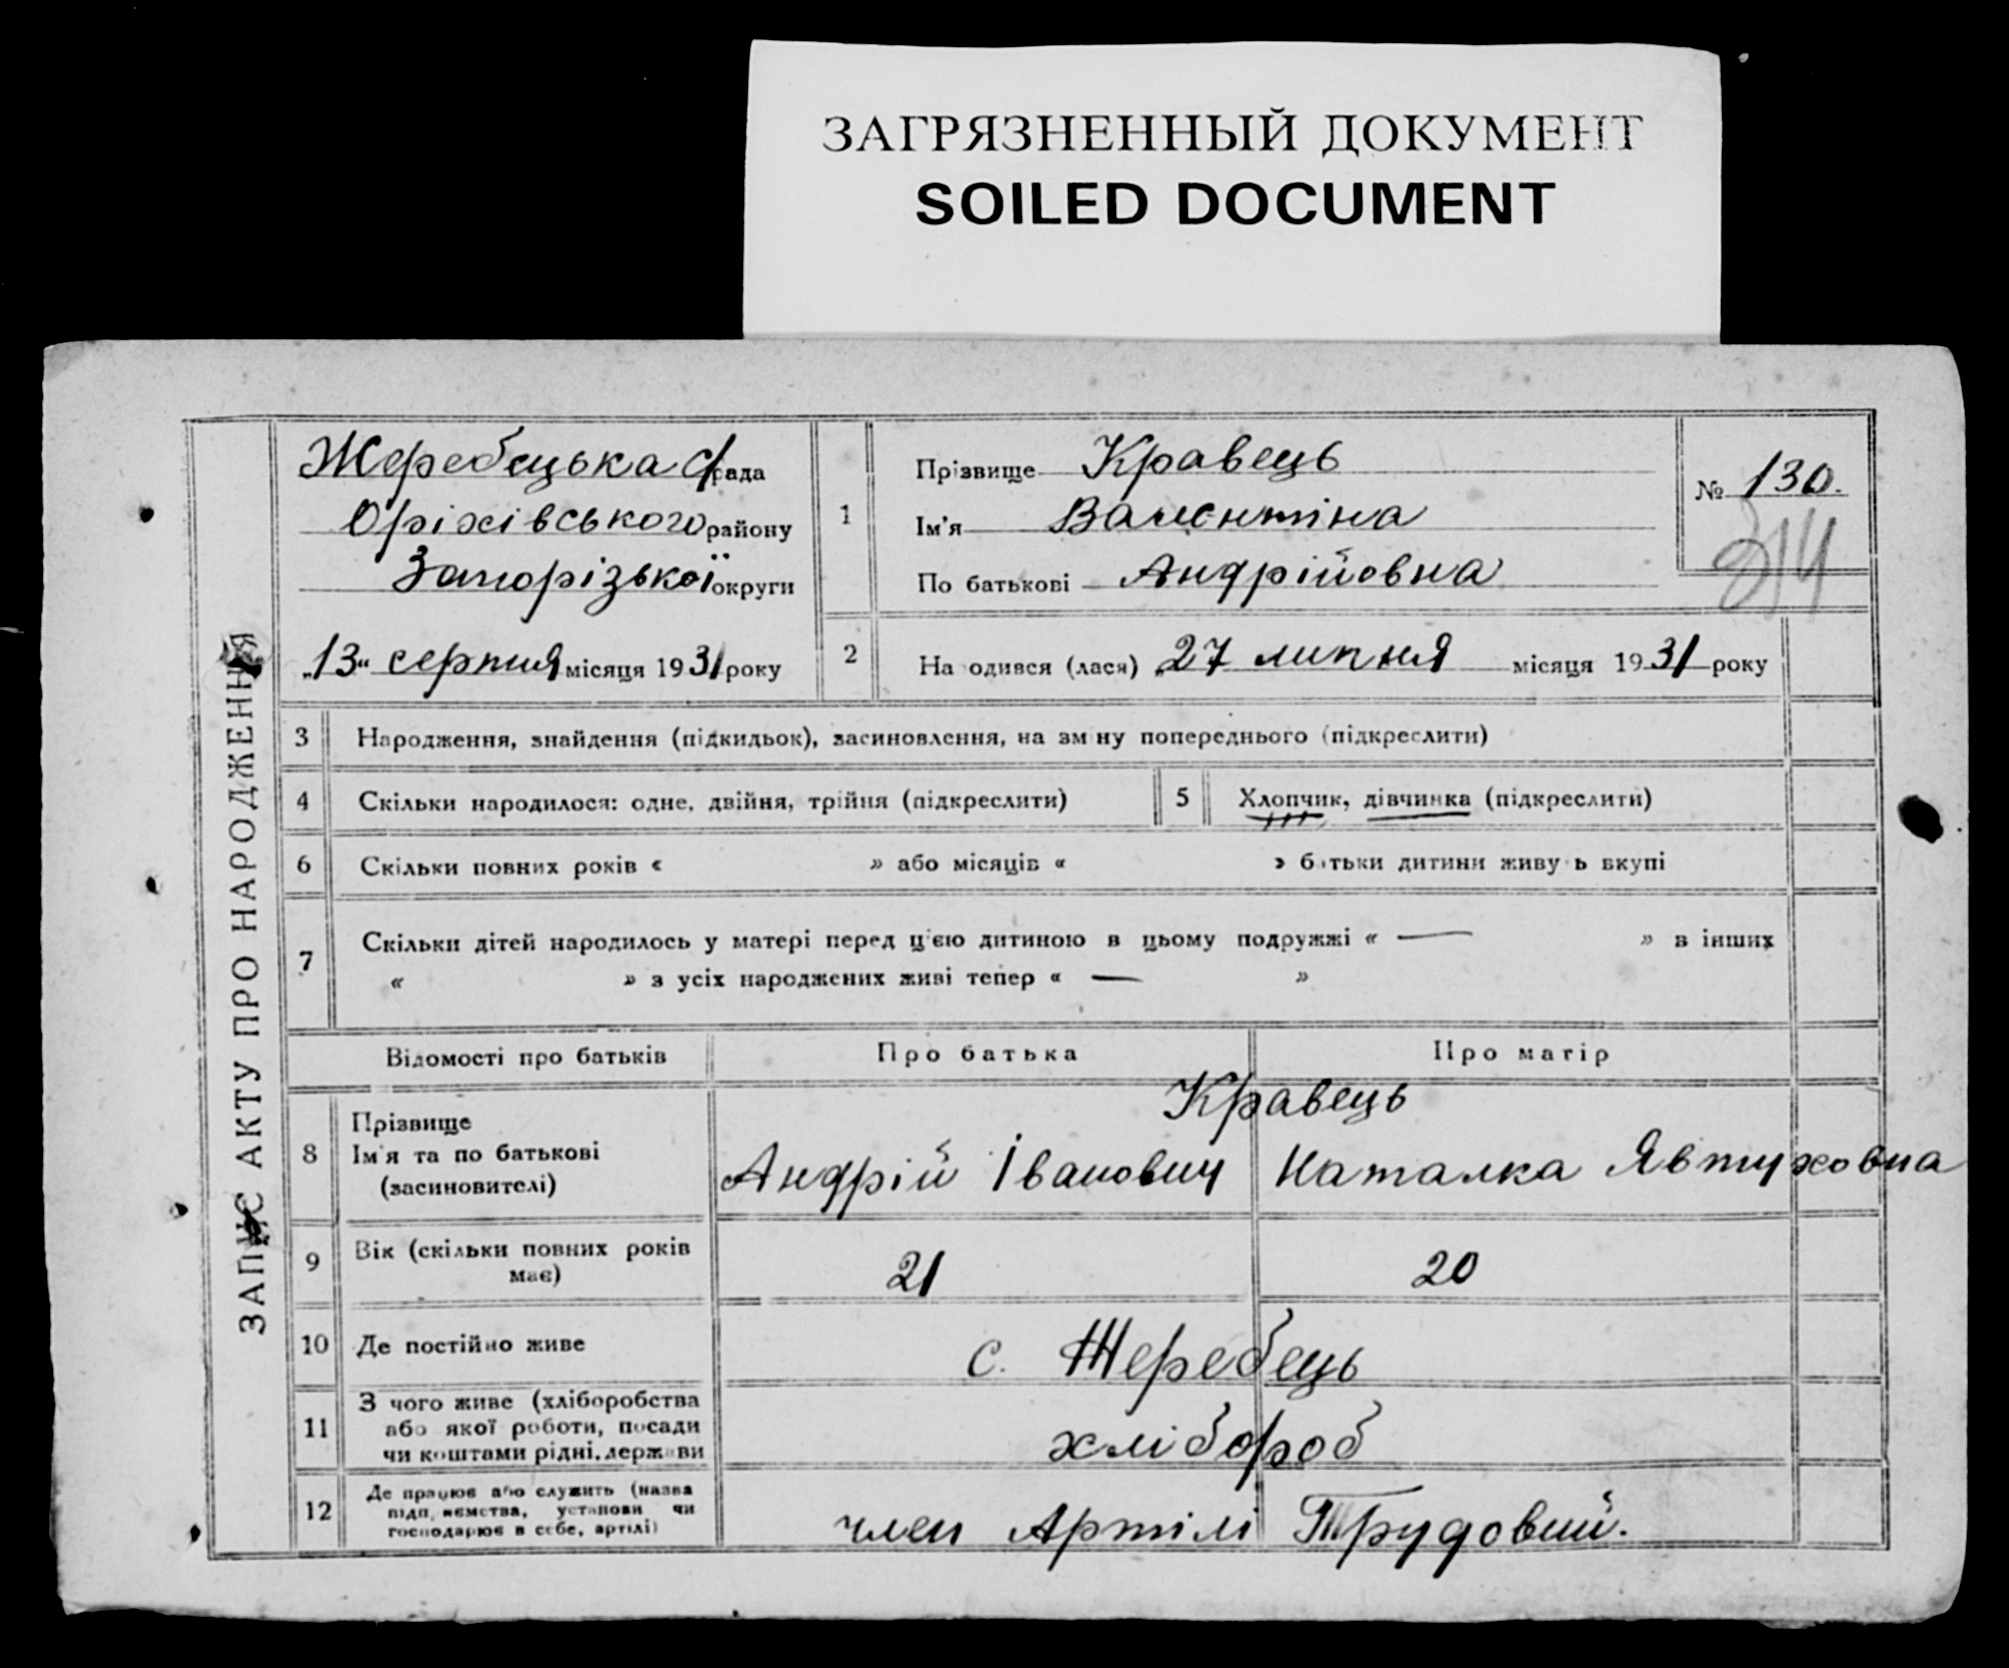 ЗАГРЯЗНЕННЫЙ ДОКУМЕНТ
SOILED DOCUMENT
ЗАПИС АКТУ ПРО НАРОДЖЕННЯ
Жеребецька с/рада
Оріхівського району
Запорізької округи
„13“ серпня місяця 1931 року
1
Прізвище Кравець
Ім'я Валентіна
По батькові Андрійовна
№ 130.
314
2
На одився (лася) „27 липня місяця 1931 року
3 Народження, знайдення (підкидьок), засиновлення, на зм ну попереднього (підкреслити)
4 Скільки народилося: одне, двійня, трійня (підкреслити)
5 Хлопчик, дівчинка (підкреслити)
6 Скільки повних років « » або місяців « » батьки дитини живу ь вкупі
7 Скільки дітей народилось у матері перед цією дитиною в цьому подружжі « — » в інших
« » з усіх народжених живі тепер « — »
Відомості про батьків
Про батька
Про матір
8 Прізвище
Ім'я та по батькові
(засиновителі)
Кравець
Андрій Іванович
Наталка Явтуховна
9 Вік (скільки повних років
має)
21
20
10 Де постійно живе
с. Жеребець
11 З чого живе (хліборобства
або якої роботи, посади
чи коштами рідні, держави
хлібороб
12 Де працює або служить (назва
підп иємства, установи чи
господарює в себе, артілі)
член Артілі Трудовий.